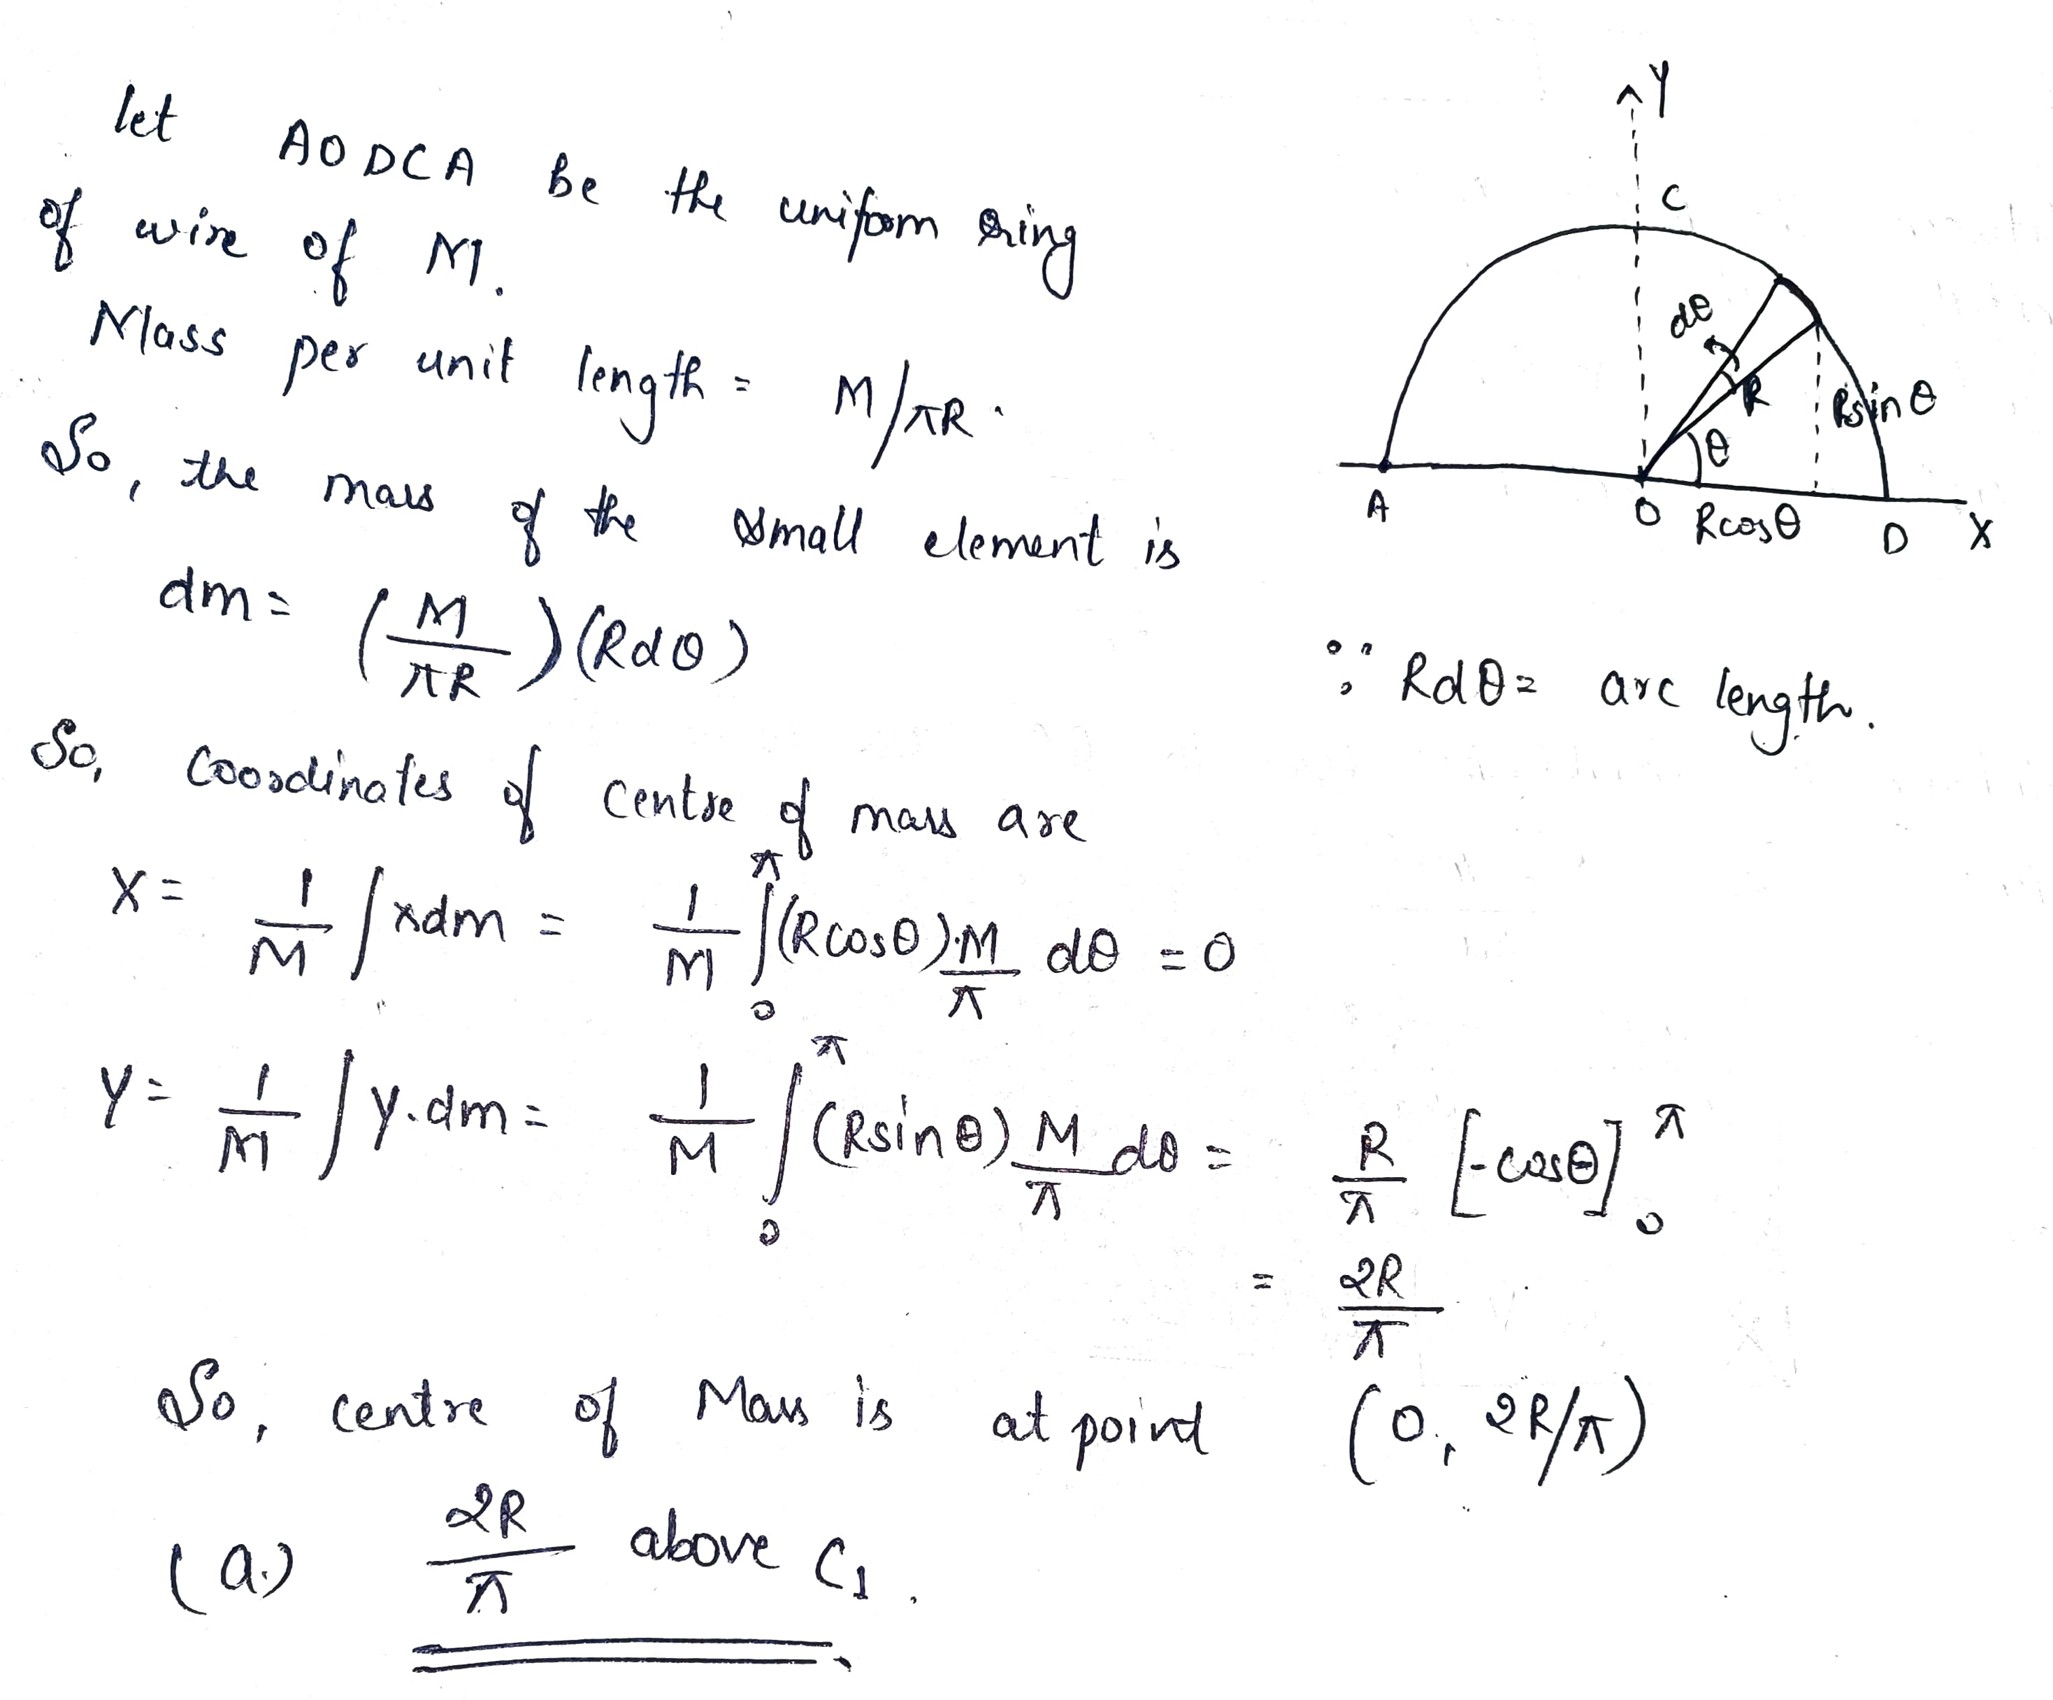 let AODCA be the uniform ring
of wire of M.
Mass per unit length = M/πR.
So, the mass of the small element is
dm = (M/πR)(Rdθ)
∵ Rdθ = arc length.
So, coordinates of centre of mass are
X = 1/M ∫xdm = 1/M ∫₀^π (Rcosθ).M/π dθ = 0
Y = 1/M ∫y.dm = 1/M ∫₀^π (Rsinθ) M/π dθ = R/π [-cosθ]₀^π
= 2R/π
So, centre of Mass is at point (0, 2R/π)
(a.) 2R/π above C₁.
Y
C
dθ
R
Rsinθ
θ
A
O
Rcosθ
D
X